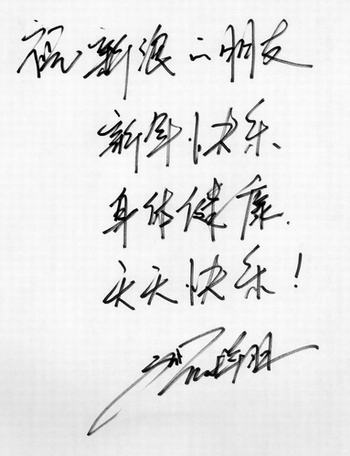 祝新浪的朋友
新年快乐
身体健康.
天天快乐!